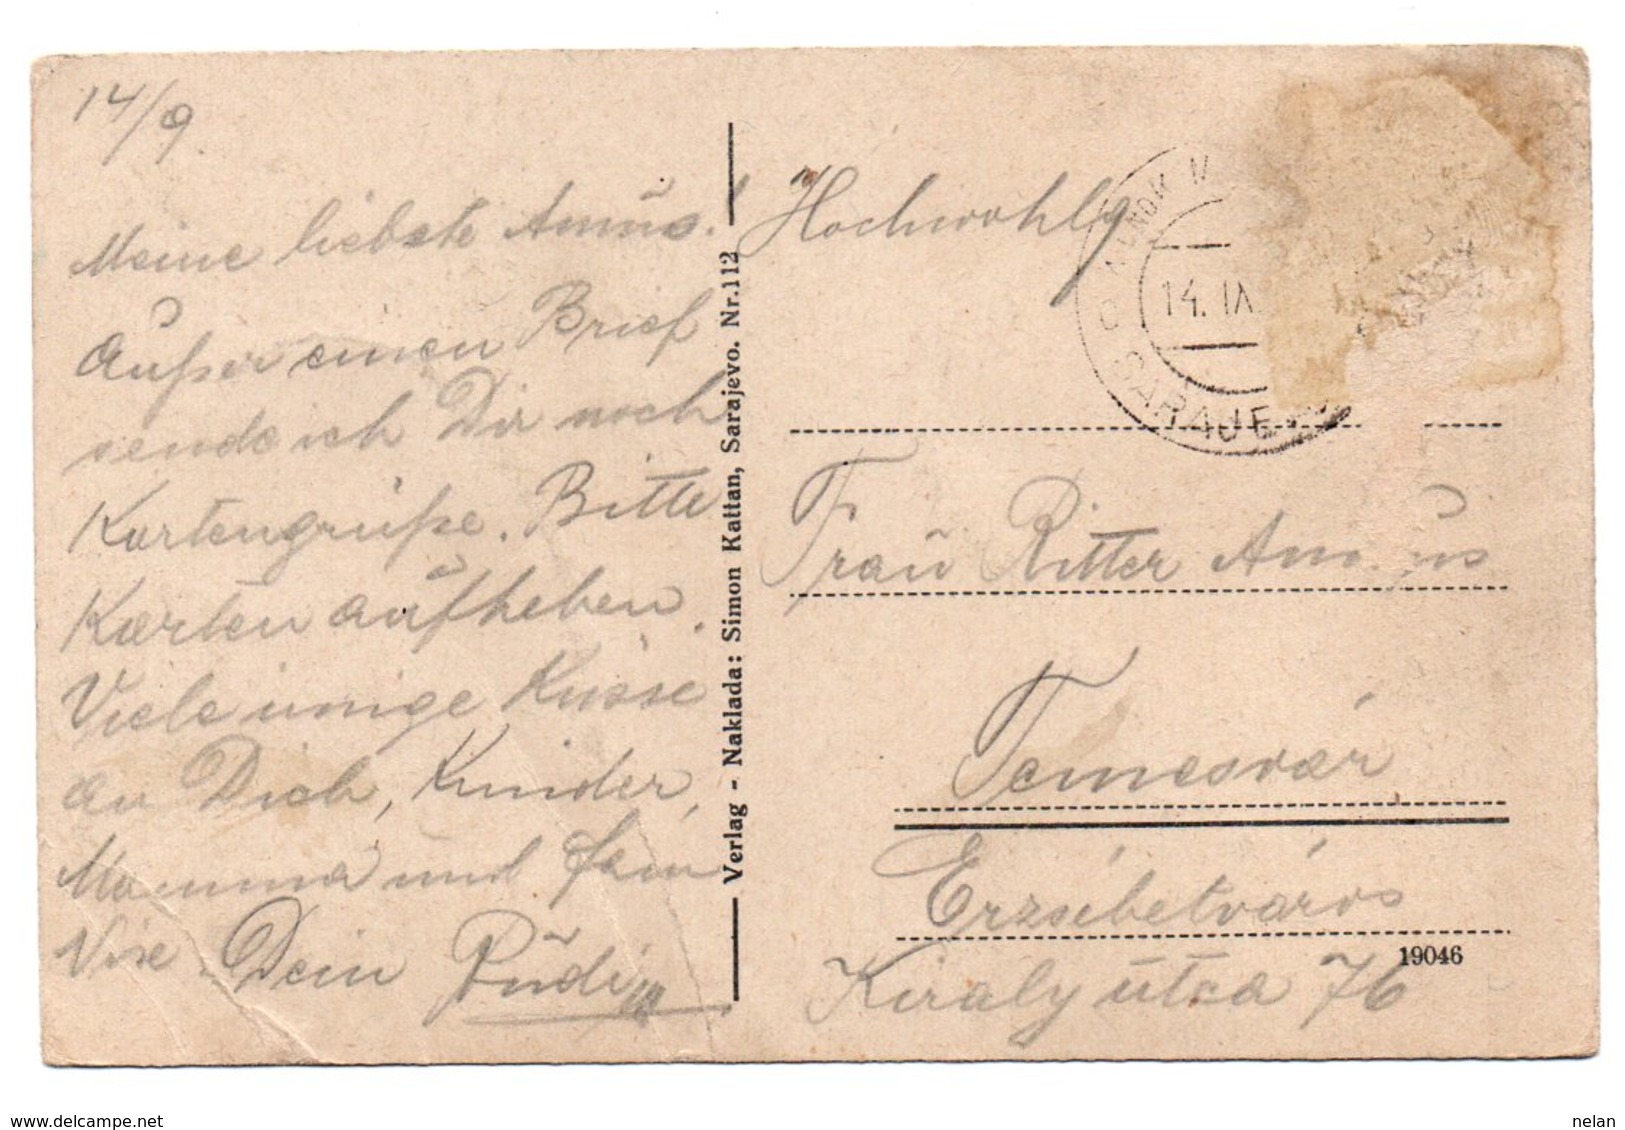 14/9.
Meine liebste Annus!
Außer einen Brief
sende ich Dir noch
Kartengrüße. Bitte
Karten aufheben.
Viele innige Küsse
an Dich, Kinder,
Mamma und
Dein Rudi
Verlag - Naklada: Simon Kattan, Sarajevo. Nr.112
Hochwohlg
14. IX.
SARAJE
Frau Ritter Annus
Temesvár
Erzsébetváros
Király útca 76
19046
www.delcampe.net
nelan